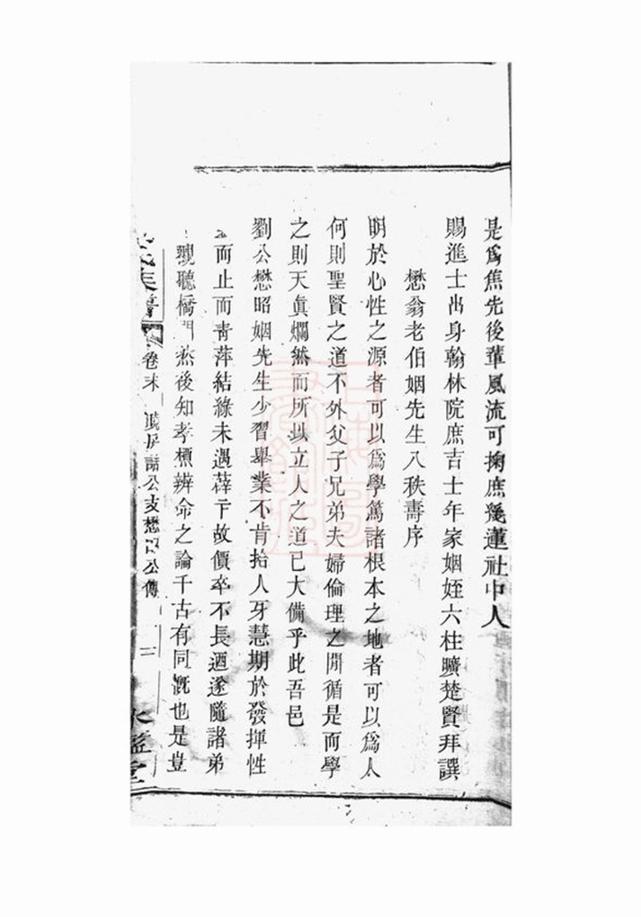 是爲焦先後輩風流可掬庶幾蓮社中人
賜進士出身翰林院庶吉士年家姻姪六柱曠楚賢拜譔
懋翁老伯姻先生八秩壽序
明於心性之源者可以爲學篤諸根本之地者可以爲人
何則聖賢之道不外父子兄弟夫婦倫理之間循是而學
之則天眞爛然而所以立人之道已大備乎此吾邑
劉公懋昭姻先生少習舉業不肯拾人牙慧期於發揮性
而止而靑萍結綠未遇薛卞故價卒不長迺遂隨諸弟
觀聽橋門然後知孝標辨命之論千古有同慨也是豈
族譜
卷末
公支懋
公傳
三